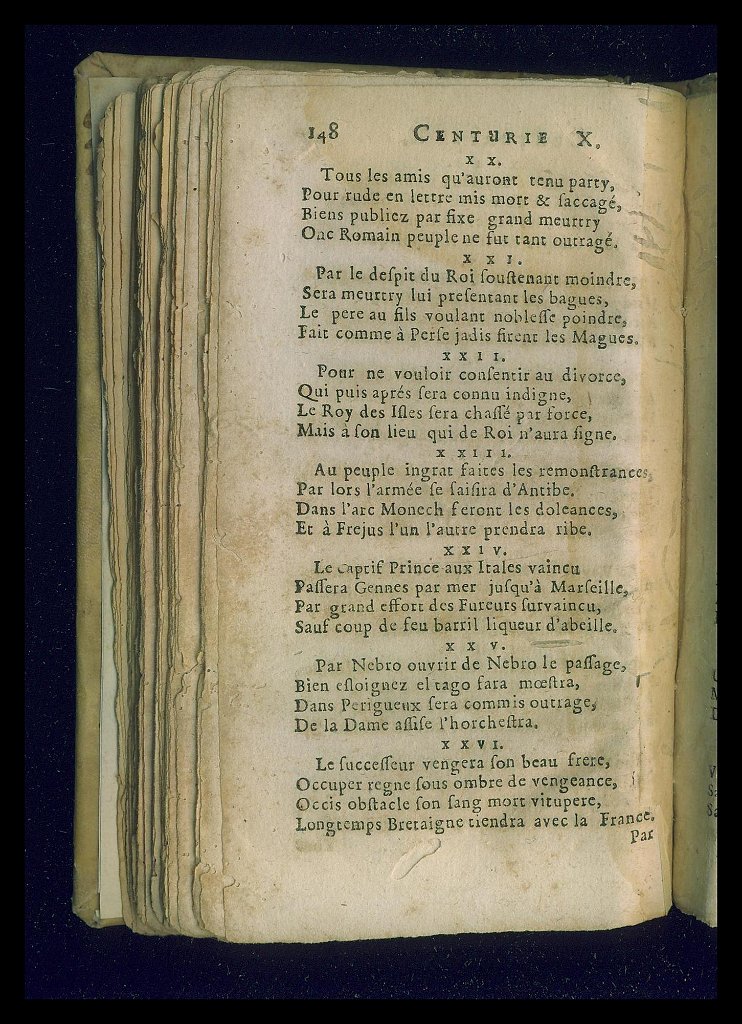 148 CENTURIE X.
X X.
Tous les amis qu'auront tenu party,
Pour rude en lettre mis mort & ſaccagé,
Biens publiez par fixe grand meurtry
Onc Romain peuple ne fut tant outragé.
X X I.
Par le deſpit du Roi ſouſtenant moindre,
Sera meurtry lui preſentant les bagues,
Le pere au fils voulant nobleſſe poindre,
Fait comme à Perſe jadis firent les Magues.
X X I I.
Pour ne vouloir conſentir au divorce,
Qui puis aprés ſera connu indigne,
Le Roy des Iſles ſera chaſſé par force,
Mais à ſon lieu qui de Roi n'aura ſigne.
X X I I I.
Au peuple ingrat faites les remonſtrances,
Par lors l'armée ſe ſaiſira d'Antibe.
Dans l'arc Monech feront les doleances,
Et à Frejus l'un l'autre prendra ribe.
X X I V.
Le captif Prince aux Itales vaincu
Paſſera Gennes par mer juſqu'à Marſeille,
Par grand effort des Fureurs ſurvaincu,
Sauf coup de feu barril liqueur d'abeille.
X X V.
Par Nebro ouvrir de Nebro le paſſage,
Bien eſloignez el tago fara mœſtra,
Dans Perigueux ſera commis outrage,
De la Dame aſſiſe l'horcheſtra.
X X V I.
Le ſucceſſeur vengera ſon beau frere,
Occuper regne ſous ombre de vengeance,
Occis obſtacle ſon ſang mort vitupere,
Longtemps Bretaigne tiendra avec la France.
Par